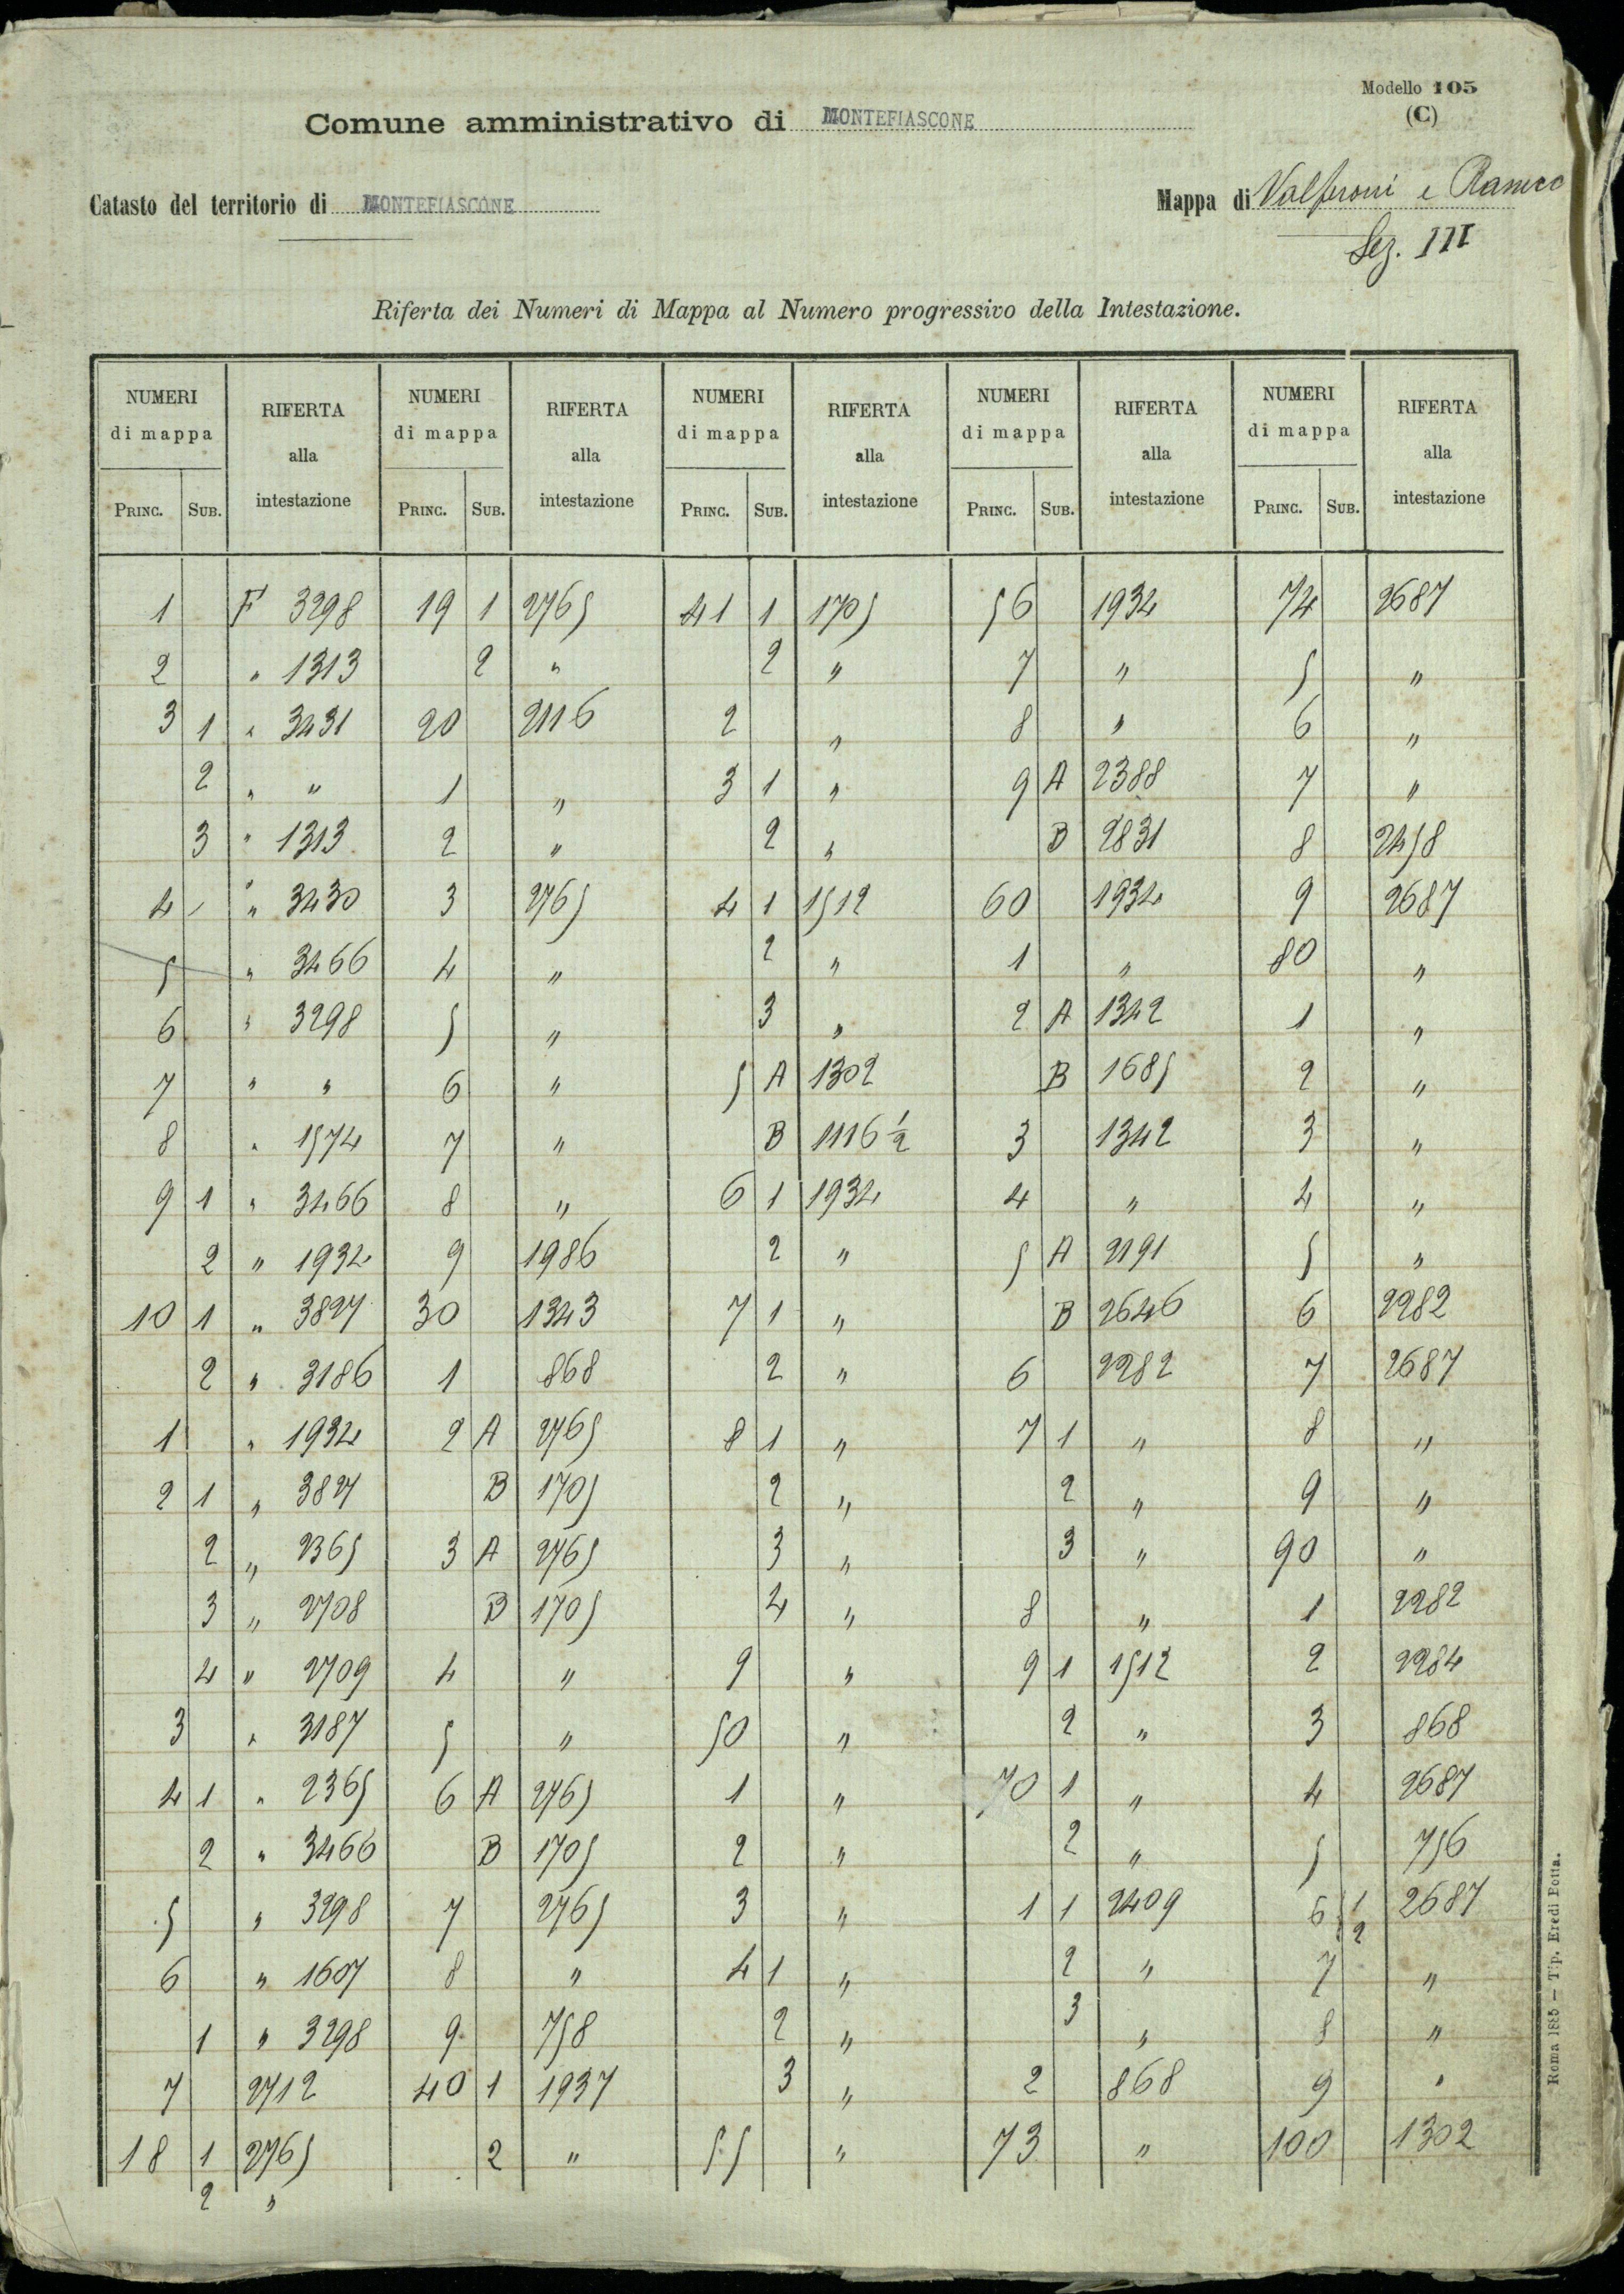 Modello 105
(C)
Comune amministrativo di MONTEFIASCONE
Catasto del territorio di MONTEFIASCONE
Mappa di e
Sez. III
Riferta dei Numeri di Mappa al Numero progressivo della Intestazione.
NUMERI RIFERTA NUMERI RIFERTA NUMERI RIFERTA NUMERI RIFERTA NUMERI RIFERTA
di mappa alla di mappa alla di mappa alla di mappa alla di mappa alla
PRINC. SUB. intestazione PRINC. SUB. intestazione PRINC. SUB. intestazione PRINC. SUB. intestazione PRINC. SUB. intestazione
1 F 3298 19 1 2765 41 1 1705 56 1934 74 2687
2 " 1313 2 " 2 " 7 " 5 "
3 1 " 3431 20 2116 2 " 8 " 6 "
2 " " 1 " 3 1 " 9 A 2388 7 "
3 " 1313 2 " 2 " B 2831 8 2458
4 " 3430 3 2765 4 1 1512 60 1934 9 2687
5 " 3466 4 " 2 " 1 " 80 "
6 " 3298 5 " 3 " 2 A 1342 1 "
7 " " 6 " 5 A 1302 B 1685 2 "
8 " 1574 7 " B 1116 1/2 3 1342 3 "
9 1 " 3466 8 " 6 1 1934 4 " 4 "
2 " 1934 9 1986 2 " 5 A 2191 5 "
10 1 " 3827 30 1343 7 1 " B 2646 6 2282
2 " 3186 1 868 2 " 6 2282 7 2687
1 " 1934 2 A 2765 8 1 " 7 1 " 8 "
2 1 " 3827 B 1705 2 " 2 " 9 "
2 " 2365 3 A 2765 3 " 3 " 90 "
3 " 2708 B 1705 4 " 8 " 1 2282
4 " 2709 4 " 9 " 9 1 1512 2 2284
3 " 3187 5 " 50 " 2 " 3 868
4 1 " 2365 6 A 2765 1 " 70 1 " 4 2687
2 " 3466 B 1705 2 " 2 " 5 756
5 " 3298 7 2765 3 " 1 1 2409 6 1 2687
2
6 " 1607 8 " 4 1 " 2 " 7 "
1 " 3298 9 758 2 " 3 " 8 "
7 2712 40 1 1937 3 " 2 868 9 "
18 1 2765 2 " 55 " 73 " 100 1302
2 "
Roma 1885 — Tip. Eredi Botta.